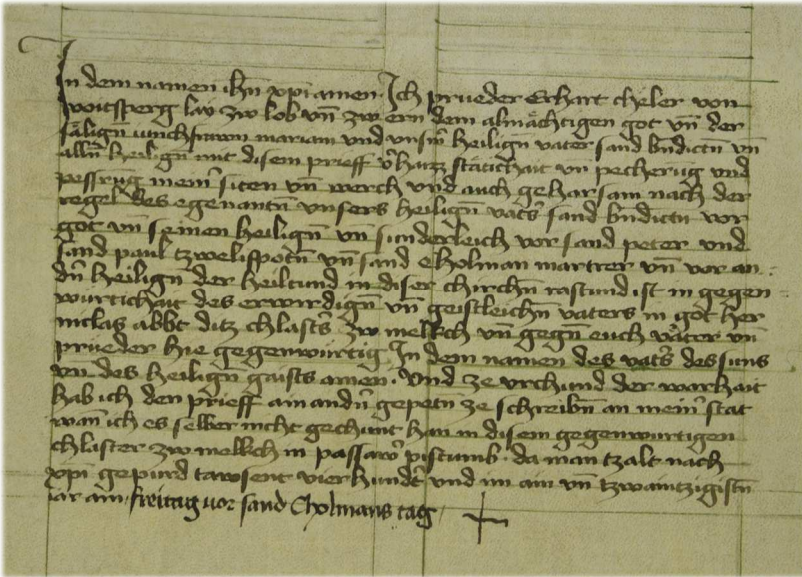 In dem namen ihū xpi amen. Ich prueder Erhart cheler von
Voitsperg lay zw lob vn̄ zw ern dem almächtigen got vn̄ der
sälign̄ junchfrawn mariam vnd vnsm̄ heilign̄ vater sand bn̄dictn vn̄
alln̄ heilign̄ mit disem prieff v̾haizz stätichait vn̄ pecherūg vnd
pessrūg meinˀ siten vn̄ werch vnd auch geharsam nach der
regel des egenantn̄ vnsers heilign̄ vatˀs sand bn̄dictn vor
got vn̄ seinen heilign̄ vn̄ sunderleich vor sand peter vnd
sand paul tzwelifpotn̄ vn̄ sand Cholman martrer vn̄ vor an
dn̄ heilign̄ der heiltund in diser chirchn̄ rastund ist in gegen
wurtichait des erwirdign̄ vn̄ geistleichn̄ vaters in got her
niclas abbt ditz chlastˀs zw melkch vn̄ gegn̄ euch väter vn̄
prueder hie gegenwürtig In dem namen des vatˀs des suns
vn̄ des heilign̄ gaists amen. Vnd ze vrchund der warhait
hab ich den prieff ain andn̄ gepetn̄ ze schreibn̄ an meinˀ stat
wan̄ ich es selber nicht gechunt han in disem gegenwurtigen
chlaster zw mellkch in passawˀ pistumb. da man tzalt nach
xpi gepurd tawsent vierhundˀt vnd im ain vn̄ tzwaintzigistn̄
iar am freitag vor sand Cholmans tag